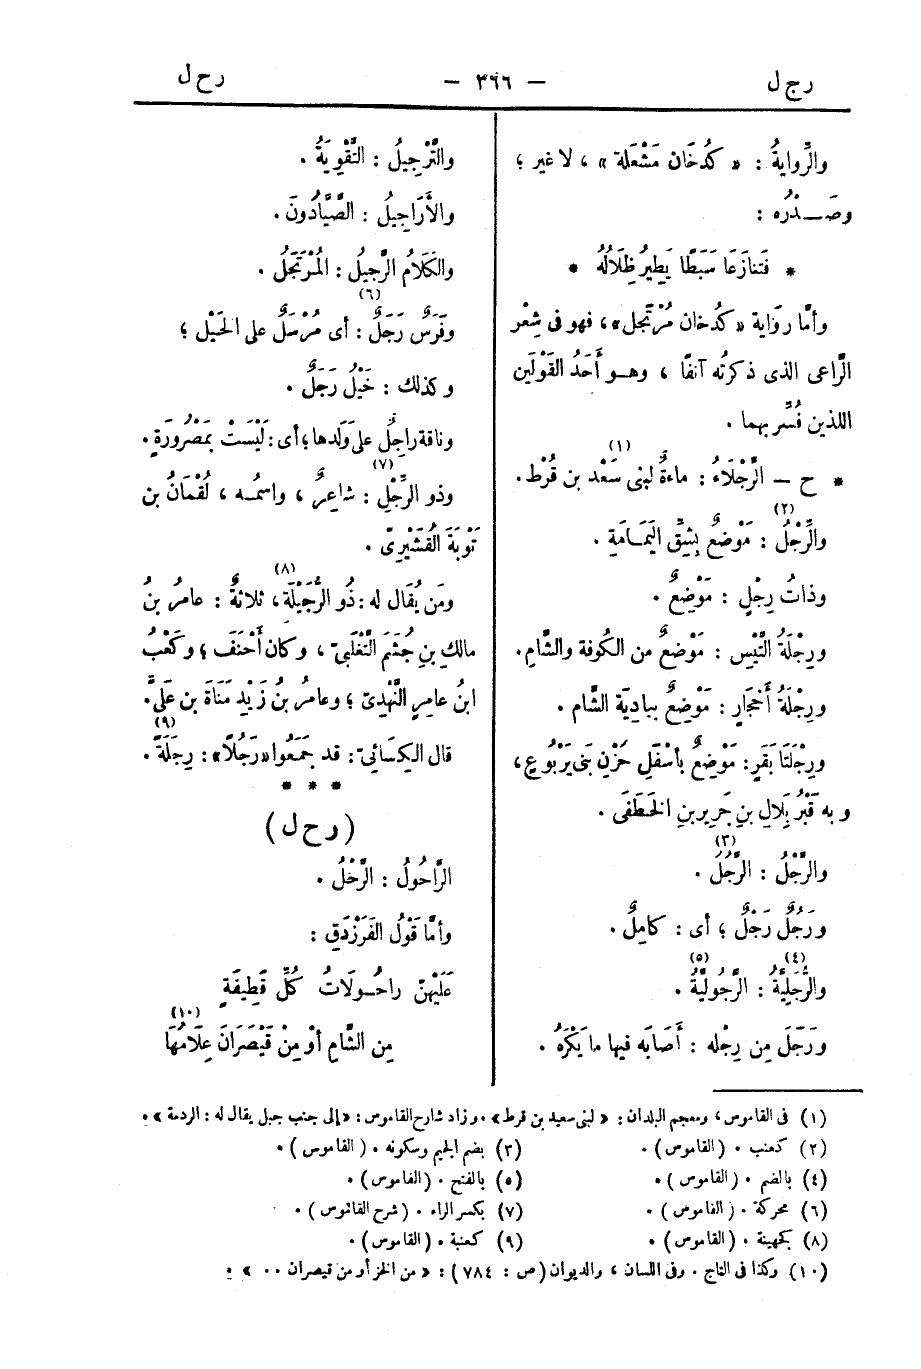 رج ل — ٣٦٦ — رح ل
والرِّوايةُ : « كدُخَان مَشْعَلة » ، لا غير ؛
وصَـدْرُه :
* فَتنازَعَا سَبَطًا يَطِيرُ ظِلَالُهُ *
وأمَّا رِوَاية «كدُخان مُرْتَجل» ، فهو فى شِعْر
الرَّاعى الذى ذكرتُه آنفًا ، وهـو أَحَدُ القَوْلَين
اللذين فُسِّر بهما .
* ح — الرَّجْلَاءُ : ماءةٌ لبنى سَعْد بن قُرْط (١) .
والرِّجَلُ (٢) : مَوْضعٌ بِشِقِّ اليَمـامَةِ .
وذاتُ رِجْلٍ : مَوْضِعٌ .
ورِجْلَةُ التَّيْسِ : مَوْضعٌ من الكُوفة والشَّامِ .
ورِجْلَةُ أَحْجَارٍ : مَوْضِعٌ ببادِيَة الشَّام .
ورِجْلَتَا بَقَرٍ : مَوْضِعٌ بأَسْفَلِ حَزْنِ بَنى يَرْبُوعٍ ،
وبه قَبْرُ بِلَالِ بنِ جَرِير بنِ الخَطَفَى .
والرَّجْلُ (٣) : الرَّجُلُ .
ورَجُلٌ رَجْلٌ ؛ أى : كاملٌ .
والرُّجْلِيَّةُ (٤) : الرَّجُوليَّةُ (٥) .
ورَجَلَ مِن رِجْله : أَصَابَه فيها ما يَكْرَهُ .
والتَّرْجِيلُ : التَّقْوِيَةُ .
والأَرَاجِيلُ : الصَّيَّادُونَ .
والكَلَامُ الرَّجِيلُ : المُرْتَجَلُ .
وفَرَسٌ رَجَلٌ (٦) : أى مُرْسَلٌ على الخَيْل ؛
وكذلك : خَيْلٌ رَجَلٌ .
وناقة راجِلٌ على وَلَدها ؛ أى : لَيْسَتْ بمَصْرُورَةٍ .
وذو الرِّجْلِ (٧) : شاعِرٌ ، واسمُـه ، لُقْمَانُ بن
تَوْبَةَ القُشَيْرِىّ .
ومَن يُقَال له : ذُو الرُّجَيْلَةِ (٨) ، ثلاثةٌ : عامرُ بنُ
مالك بنِ جُشَمَ التَّغْلَبِىّ ، وكان أَحْنَفَ ؛ وكَعْبُ
ابنُ عامِرٍ النَّهْدِىّ ؛ وعامرُ بنُ زَيْدِ مَنَاةَ بن عَلِىٍّ .
قال الكِسَائىّ : قد جَمَعُوا «رَجُلًا» : رِجَلَةً (٩) .
* * *
(رح ل)
الرَّاحُولُ : الرَّحْلُ .
وأَمَّا قَوْلُ الفَرَزْدَقِ :
عَلَيْهِنّ راحُـولَاتُ كُلِّ قَطِيفَةٍ
مِن الشَّامِ أوْ مِنْ قَيْصَرَانَ عِلَامُهَا (١٠)
(١) فى القاموس ، ومعجم البلدان : « لبنى سعيد بن قرط » . وزاد شارح القاموس : «إلى جنب جبل يقال له : الردمة » .
(٢) كعنب . (القاموس) . (٣) بضم الجيم وسكونه . (القاموس) .
(٤) بالضم . (القاموس) . (٥) بالفتح . (القاموس) .
(٦) محركة . (القاموس) . (٧) بكسر الراء . (شرح القاموس) .
(٨) كجهينة . (القاموس) . (٩) كعنبة . (القاموس) .
(١٠) وكذا فى التاج . وفى اللسان ، والديوان (ص : ٧٨٤) : « من الخز أو من قيصران .. » .